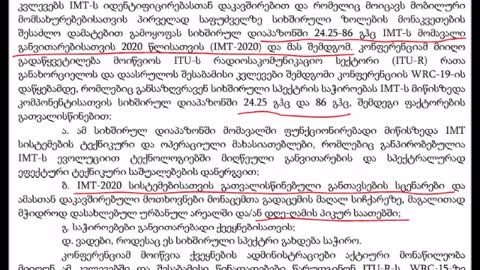 კვლევებს IMT-ს იდენტიფიცირებასთან დაკავშირებით და რომელიც მოიცავს მობილური
მომსახურებებისათვის პირველად საფუძველზე სიხშირული ზოლების მონაკვეთების
შესაძლო დამატებით გამოყოფას სიხშირულ დიაპაზონში 24.25-86 გჰც IMT-ს მომავალი
განვითარებისათვის 2020 წლისათვის (IMT-2020) და მას შემდგომ. კონფერენციამ მიიღო
გადაწყვეტილება მოიწვიოს ITU-ს რადიოსაკომუნიკაციო სექტორი (ITU-R) რათა
განახორციელოს და დაასრულოს შესაბამისი კვლევები შემდგომი კონფერენციის WRC-19-ის
დაწყებამდე, რომლებიც განსაზღვრავენ სიხშირული სპექტრის საჭიროებას IMT-ს მიწისზედა
კომპონენტისათვის სიხშირულ დიაპაზონში 24.25 გჰც და 86 გჰც, შემდეგი ფაქტორების
გათვალისწინებით:
ა. ამ სიხშირულ დიაპაზონში მომავალში ფუნქციონირებადი მიწისზედა IMT
სისტემების ტექნიკური და ოპერაციული მახასიათებლები, რომლებიც განპირობებულია
IMT-ს ევოლუციით ტექნოლოგიებში მიღწეული განვითარების და სპექტრალურად
ეფექტური ტექნიკური საშუალებების დანერგვით;
ბ. IMT-2020 სისტემებისათვის გათვალისწინებული განთავსების სცენარები და
ამასთან დაკავშირებული მოთხოვნები მონაცემთა გადაცემის მაღალ სიჩქარეზე, მაგალითად
მჭიდროდ დასახლებულ ურბანულ არეალში და/ან დღე-ღამის პიკურ საათებში;
გ. საჭიროებები განვითარებადი ქვეყნებისათვის;
დ. ვადები, როდესაც ეს სიხშირული სპექტრი გახდება საჭირო.
კონფერენციამ მოიწვია ქვეყნების ადმინისტრაციები აქტიური მონაწილეობა
მიიღონ ამ კვლევებში და შესაბამისი წინადადებები წარუდგინონ ITU-R-ს. WRC-15-ზე